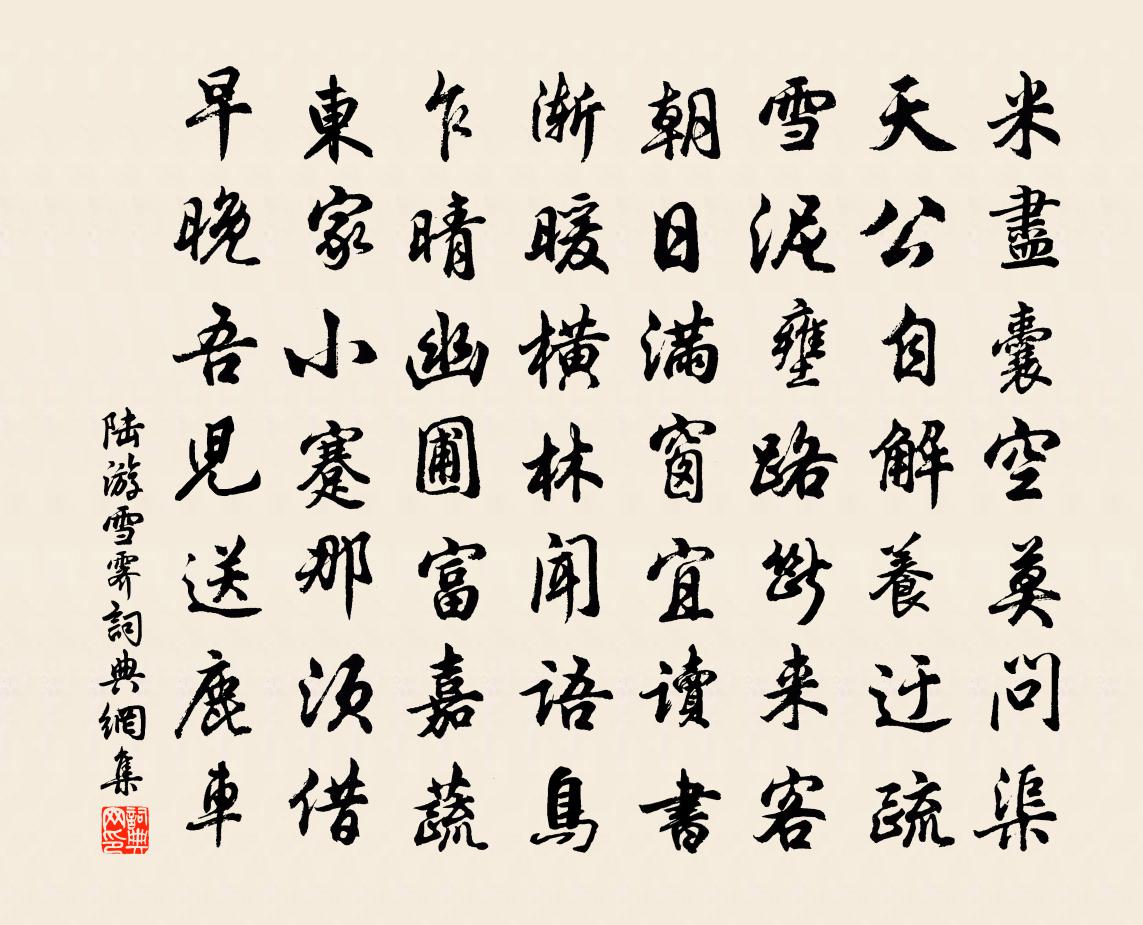 米盡囊空莫問渠
天公自解養迂疏
雪泥壅路斷来客
朝日滿窗宜讀書
漸暖橫林聞語鳥
乍晴幽圃富嘉蔬
東家小蹇那須借
早晚吾児送鹿車
陆游雪霽詞典網集
詞典网印